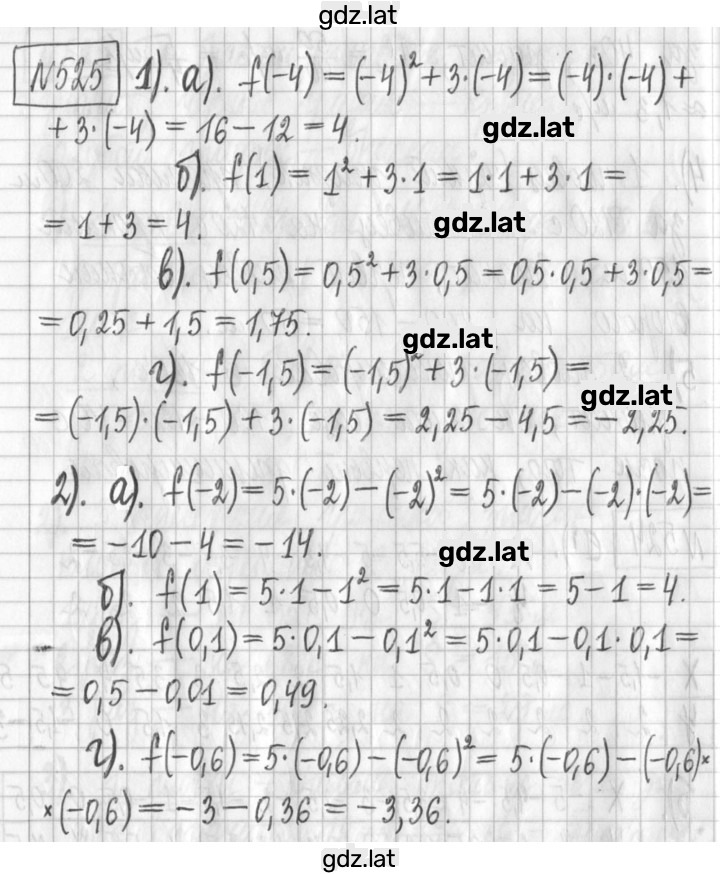 gdz.lat
№525 1). а). f(-4) = (-4)² + 3·(-4) = (-4)·(-4) +
+ 3·(-4) = 16 - 12 = 4.
gdz.lat
б). f(1) = 1² + 3·1 = 1·1 + 3·1 =
= 1 + 3 = 4.
gdz.lat
в). f(0,5) = 0,5² + 3·0,5 = 0,5·0,5 + 3·0,5 =
= 0,25 + 1,5 = 1,75.
gdz.lat
г). f(-1,5) = (-1,5)² + 3·(-1,5) =
gdz.lat
= (-1,5)·(-1,5) + 3·(-1,5) = 2,25 - 4,5 = -2,25.
2). а). f(-2) = 5·(-2) - (-2)² = 5·(-2) - (-2)·(-2) =
= -10 - 4 = -14.
gdz.lat
б). f(1) = 5·1 - 1² = 5·1 - 1·1 = 5 - 1 = 4.
в). f(0,1) = 5·0,1 - 0,1² = 5·0,1 - 0,1·0,1 =
= 0,5 - 0,01 = 0,49.
г). f(-0,6) = 5·(-0,6) - (-0,6)² = 5·(-0,6) - (-0,6)×
×(-0,6) = -3 - 0,36 = -3,36.
gdz.lat